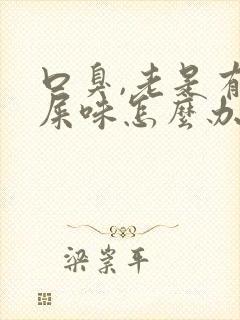 口臭,老是有
屎味怎麼办
梁崇平